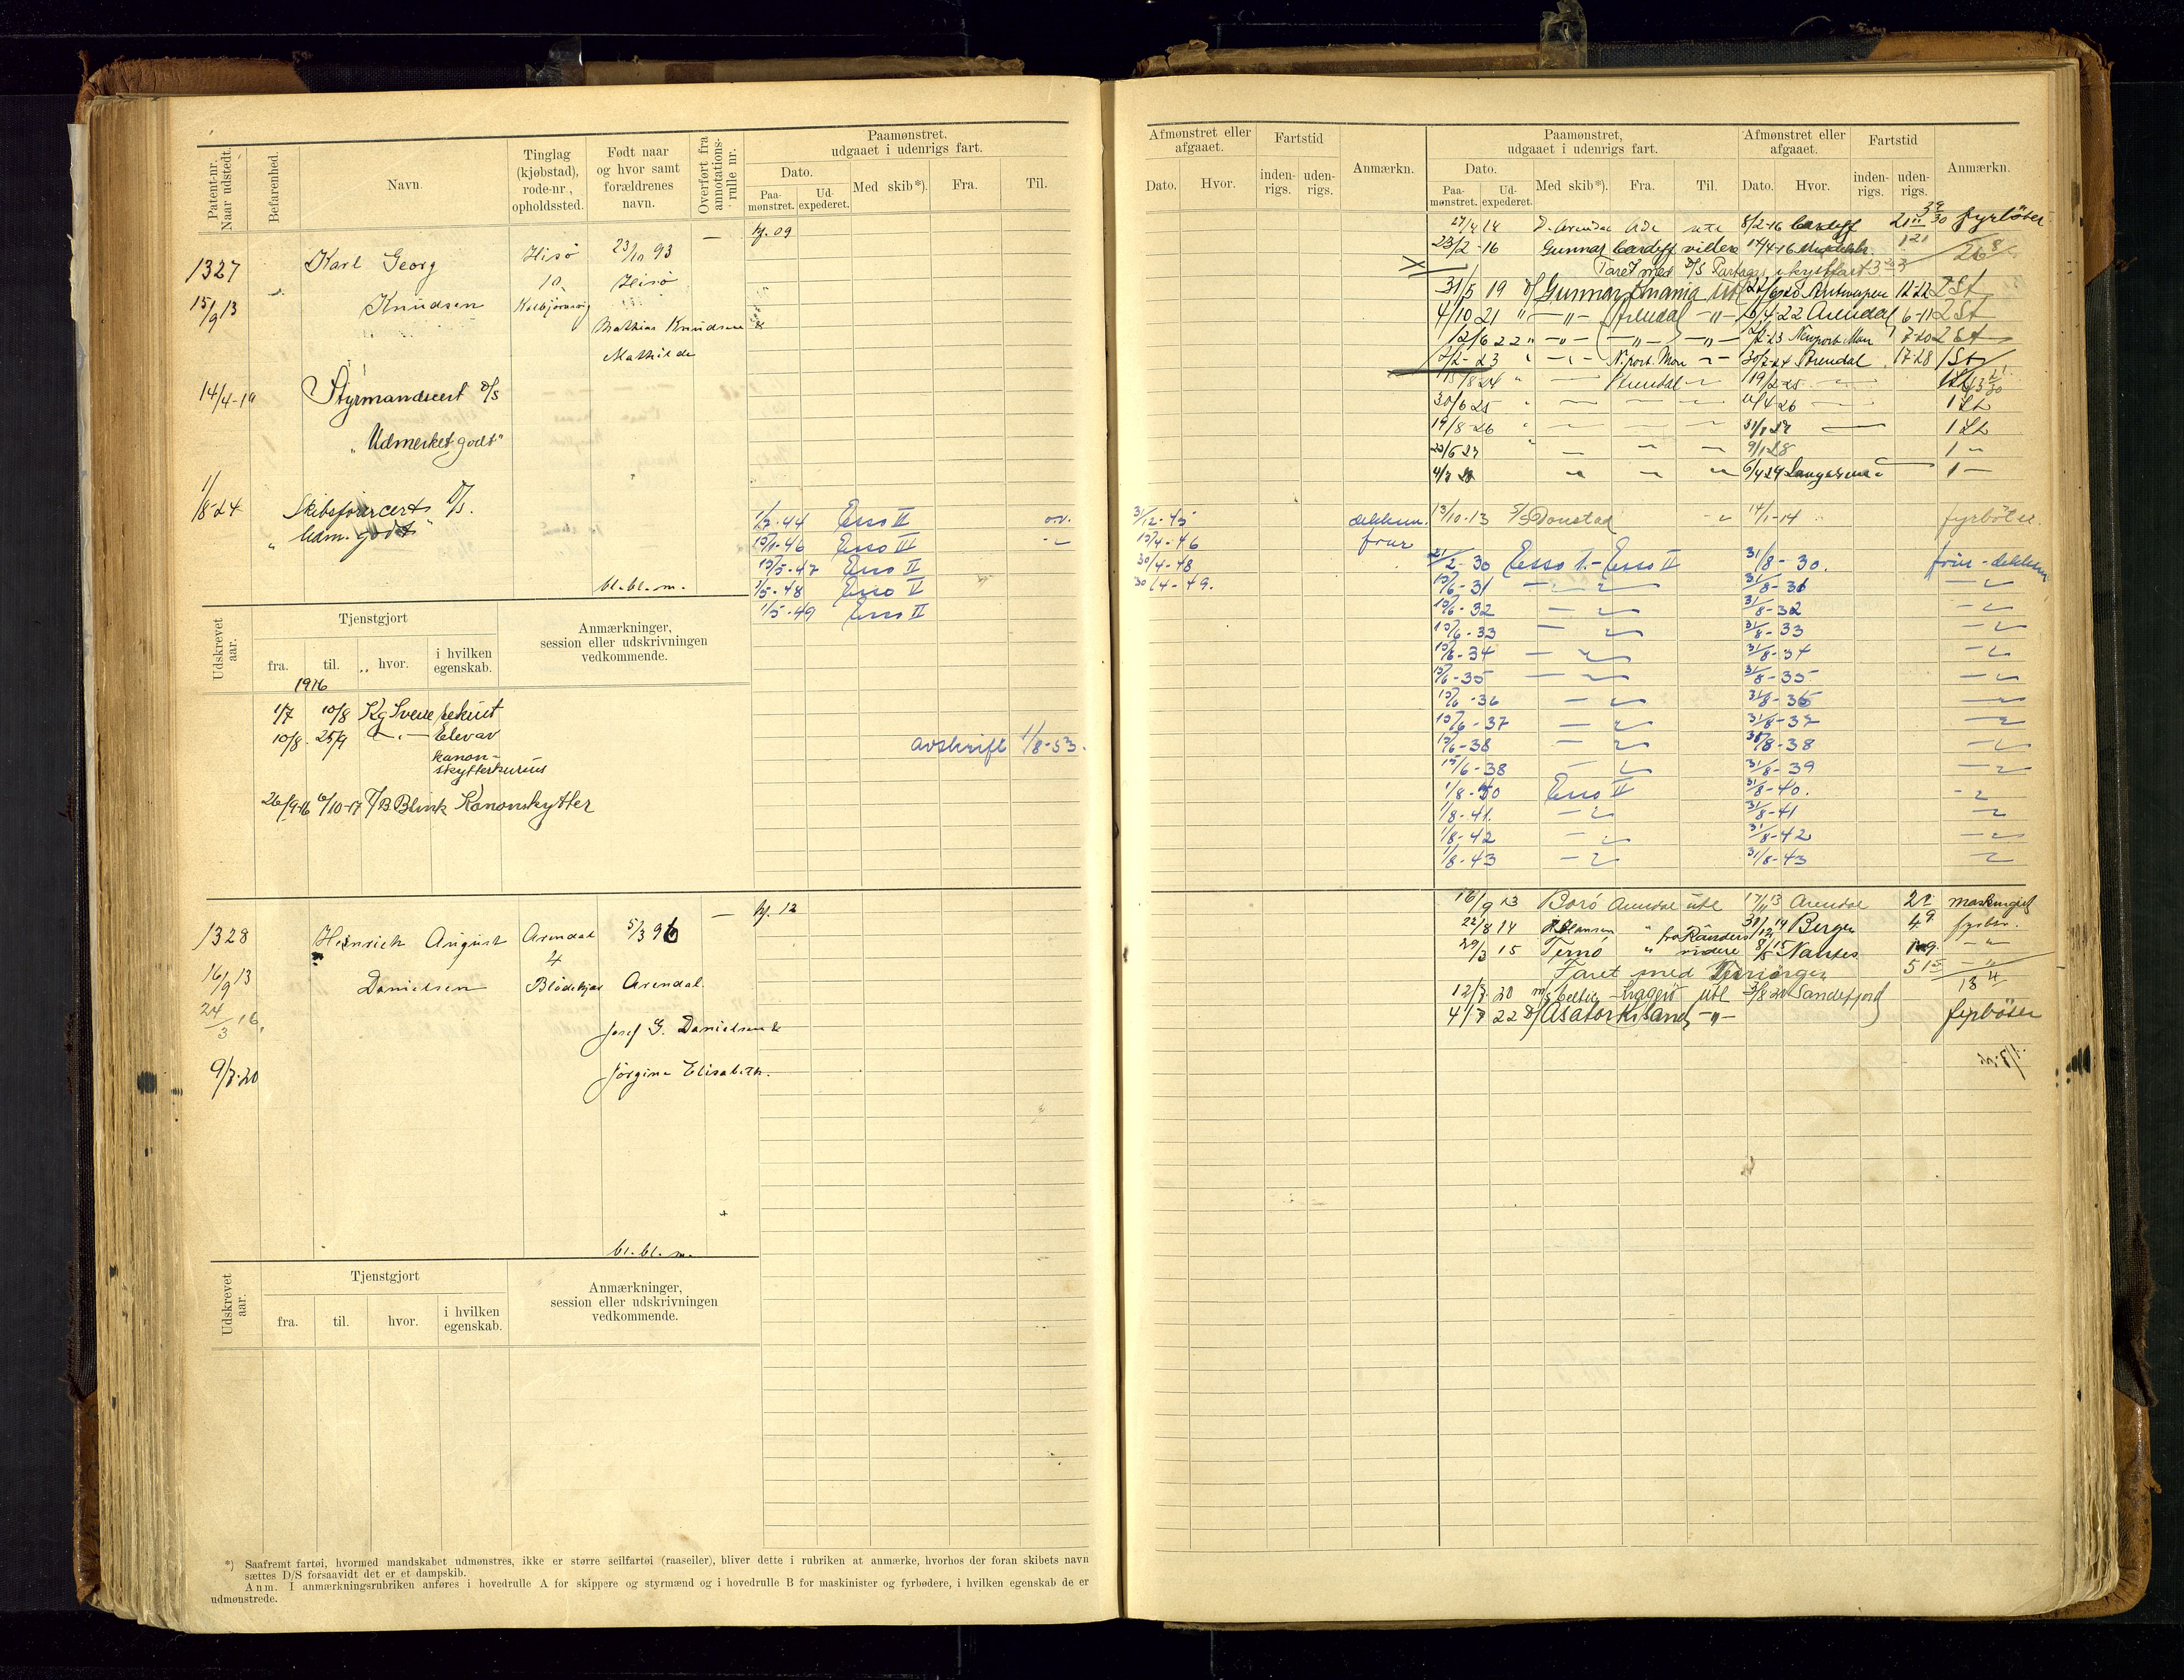 Patent-nr. Naar udstedt.
Befarenhed.
Navn.
Tinglag (kjøbstad), rode-nr., opholdssted.
Født naar og hvor samt forældrenes navn.
Overført fra annotations-rulle nr.
Paamønstret, udgaaet i udenrigs fart.
Dato.
Paa-mønstret.
Ud-expederet.
Med skib*).
Fra.
Til.
1327 Karl Georg Hisö 23/10 93
10 Hisö
15/9 13 Knudsen Kolbjörnsvig
Mathias Knudsen &
Mathilde
14/4-19 Styrmandscert D/S
"Udmerket godt"
1/8-24 Skibsförercert D/S.
"Udm. godt"
bl.bl.m.
1/9-44 Esso II
15/11-46 Esso III
15/5-47 Esso II
1/5-48 Esso V
1/5-49 Esso II
Udskrevet aar.
Tjenstgjort
fra. til. hvor. i hvilken egenskab.
Anmærkninger, session eller udskrivningen vedkommende.
1916
1/7 10/8 Kg Sverre rekrut
10/8 25/9 - " - Elev av
kanon-
skytterkursus
avskrift 1/8-53.
26/9-16 6/10-17 T/B Blink Kanonskytter
1328 Heinrich August Arendal 5/3 96
4
16/9 13 Danielsen Blödekjær Arendal.
24/3 16.
Josef G. Danielsen &
9/7-20 Jörgine Elisabeth.
bl.bl.m.
Udskrevet aar.
Tjenstgjort
fra. til. hvor. i hvilken egenskab.
Anmærkninger, session eller udskrivningen vedkommende.
*) Saafremt fartøi, hvormed mandskabet udmønstres, ikke er større seilfartøi (raaseiler), bliver dette i rubriken at anmærke, hvorhos der foran skibets navn
sættes D/S forsaavidt det er et dampskib.
Anm. I anmærkningsrubriken anføres i hovedrulle A for skippere og styrmænd og i hovedrulle B for maskinister og fyrbødere, i hvilken egenskab de er
udmønstrede.
Afmønstret eller afgaaet.
Dato. Hvor.
Fartstid
inden-rigs. uden-rigs.
Anmærkn.
Paamønstret, udgaaet i udenrigs fart.
Dato.
Paa-mønstret. Ud-expederet. Med skib*). Fra. Til.
Afmønstret eller afgaaet.
Dato. Hvor.
Fartstid
inden-rigs. uden-rigs.
Anmærkn.
27/4 14 D. Arendal Ade ute 8/2-16 Cardiff fyrböter
23/2-16 Gunnar Cardiff videre 17/4-16
Faret med D/S
31/5 19 D/ Gunnar ute Antwerpen 12-22 2 St
4/10 21 " - " - Arendal - " - 6/4-22 Arendal 6-11 2 St
12/6 22 " - " - - " - 2/2-23 Newport Mon 7-20 2 St
2/2-23 N.port. Mon 30/7-24 Arendal 17-28 1 St
15/8 24 " Arendal 19/2-25
30/6 25 4-26 1 St
19/8-26 1 St
23/6 27 9/1-28 1 "
4/7 28 6/4 29 Langesund 1 -
31/12-45 dekksm. 13/10-13 S/S Donstad 14/1-14 fyrböter.
15/4-46 förer
30/4-48 21/2-30 Esso I.-Esso II 31/8-30. förer-dekksm
30/4-49. 15/6-31 31/8-31
15/6-32 31/8-32
15/6-33 31/8-33
15/6-34 31/8-34
15/6-35 31/8-35
15/6-36 31/8-36
15/6-37 31/8-37
15/6-38 31/8-38
15/6-38 31/8-39
1/8-40 Esso II 31/8-40.
1/8-41. 31/8-41
1/8-42 31/8-42
1/8-43 31/8-43
16/9 13 Borö Arendal ute 17/11 13 Arendal 2 maskingut
22/8 14 Hansen " 14 Bergen 4 fyrbtr.
29/3 15 Ternö " fra Randers videre 8/8 15 Nantes
Faret med
12/7 20 M/S Celtic Kragerö ute 3/8 20 Sandefjord
4/7 22 D/ Asator Krsand - " - fyrböter